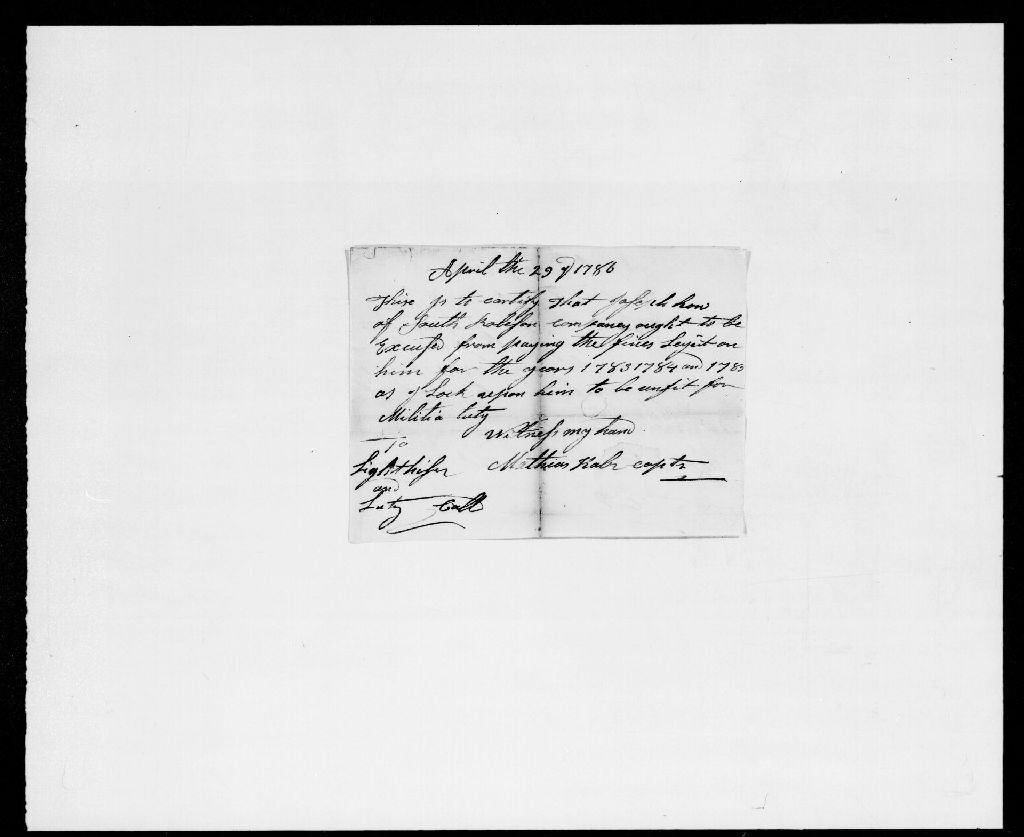 April the 29 d 1786
This is to certify that Joseph how
of South Robeson company ought to be
Excused from paying the fines Leyit on
him for the years 1783 1784 and 1785
as y Look uepon him to be unfit for
Militia luty
Witness my hand
To
Mathias Kaler captn
Lighthiser
and
Luty Coll